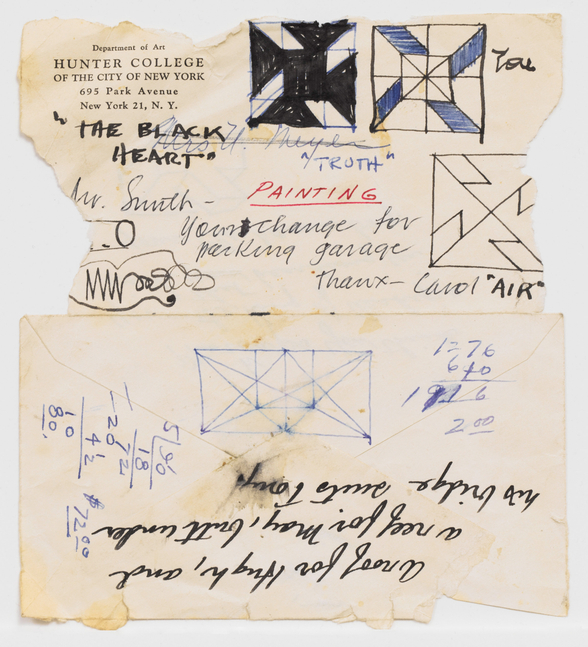 Department of Art
HUNTER COLLEGE
OF THE CITY OF NEW YORK
695 Park Avenue
New York 21, N. Y.
"THE BLACK
HEART"
"TRUTH"
PAINTING
Mr. Smith -
Your change for
parking garage
Thanx - Carol
"AIR"
.0
1-76
640
2 00
5/40
18
72
20
42
10
80.
$72.00
A roof for Hugh, and
a reef for May, built under
his bridge suits Tony.